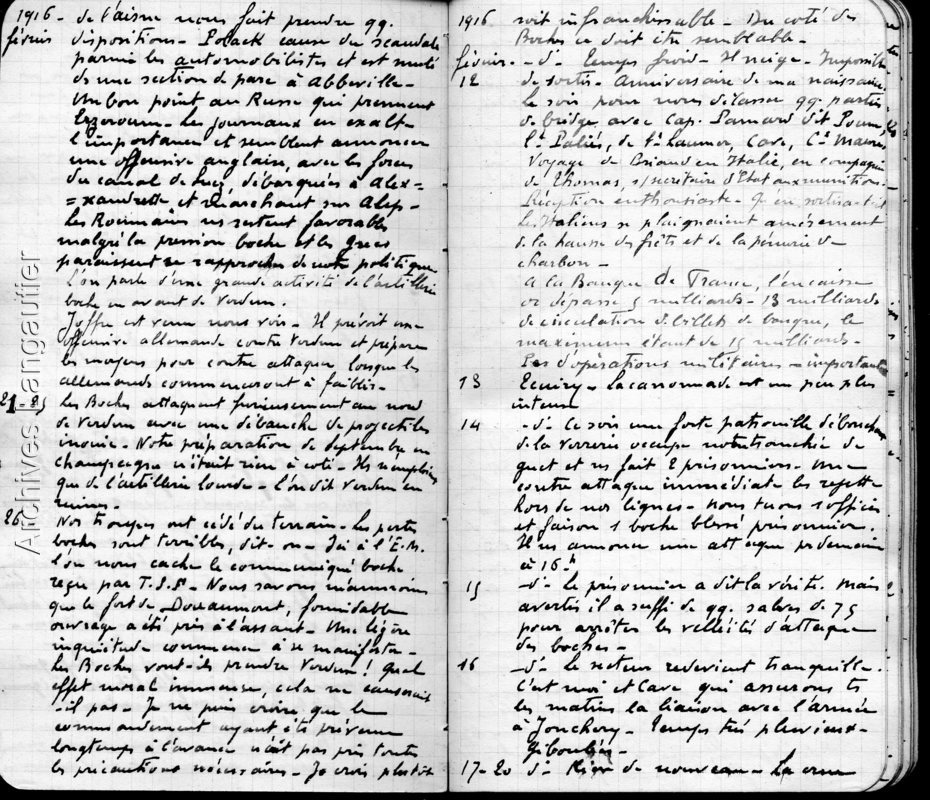 1916 - de l'aisne nous fait prendre qq.
février dispositions - Polack cause du scandale
parmi les automobilistes et est muté
ds une section de parc à Abbeville -
Un bon point au Russe qui prennent
Erzeroum - Les journaux en exalt-
l'importance et semblent annoncer
une offensive anglaise, avec les forces
du canal de Suez, débarquées à Alex=
=xandrette et marchant sur Alep -
Les Roumains ns restent favorables
malgré la pression boche et les Grecs
paraissent se rapprocher de notre politique
L'on parle d'une grande activité de l'artillerie
boche en avant de Verdun.
Joffre est venu nous voir - Il prévoit une
offensive allemande contre Verdun et prépare
les moyens pour contre attaquer lorsque les
allemands commenceront à faiblir -
21-25 Les Boches attaquent furieusement au nord
de Verdun avec une débauche de projectiles
inouïe - Notre préparation de septembre en
champagne n'était rien à coté - Ils n'emploient
que de l'artillerie lourde - l'on dit Verdun en
ruines -
26 Nos troupes ont cédé du terrain - Les pertes
boches sont terribles, dit-on - Ici à l'E.M.
l'on nous cache le communiqué boche
reçu par T.S.F - Nous savons néanmoins
que le fort de Douaumont, formidable
ouvrage a été pris à l'assaut - Une légère
inquiétude commence à se manifester -
Les Boches vont-ils prendre Verdun ! Quel
effet moral immense, cela ne causerait
-il pas - Je ne puis croire que le
commandement ayant été prévenu
longtemps à l'avance n'ait pas pris toutes
les précautions nécessaires - Je crois plutôt
Archives Langautier
1916 soit infranchissable - Du coté des
Boches ce doit être semblable -
février - d° - Temps froid - Il neige - Impossible
12 de sortir - Anniversaire de ma naissance
le soir pour nous délasser qq. parties
de bridge, avec Cap. Pamard dit
Lt Paliés, de St Laumer, Cave,
Voyage de Briand en Italie, en compagnie
de Thomas, s/secrétaire d'Etat aux munitions -
Réception enthousiaste -
Les Italiens se plaignaient amèrement
de la hausse des frêts et de la pénurie de
charbon -
A la Banque de France, l'encaisse
or dépasse 5 milliards - 13 milliards
de circulation de billets de banque, le
maximum étant de 15 milliards -
Pas d'opérations militaires - importantes
13 Ecuiry - La canonnade est un peu plus
intense
14 - d° Ce soir une forte patrouille débouchant
de la verrerie occupe notre tranchée de
guet et ns fait 2 prisonniers - Une
contre attaque immédiate les rejette
hors de nos lignes - nous tuons 1 officier
et faisons 1 boche blessé prisonnier.
Il ns annonce une attaque pr demain
à 16 h
15 - d° Le prisonnier a dit la vérité. Mais
avertis il a suffi de qq. salves de 75
pour arrêter les velléités d'attaque
des boches -
16 - d° Le secteur redevient tranquille.
C'est moi et Cave qui assurons ts
les matins la liaison avec l'armée
à Jonchery - Temps très pluvieux -
Giboulées -
17-20 d° Rien de nouveau - La crue